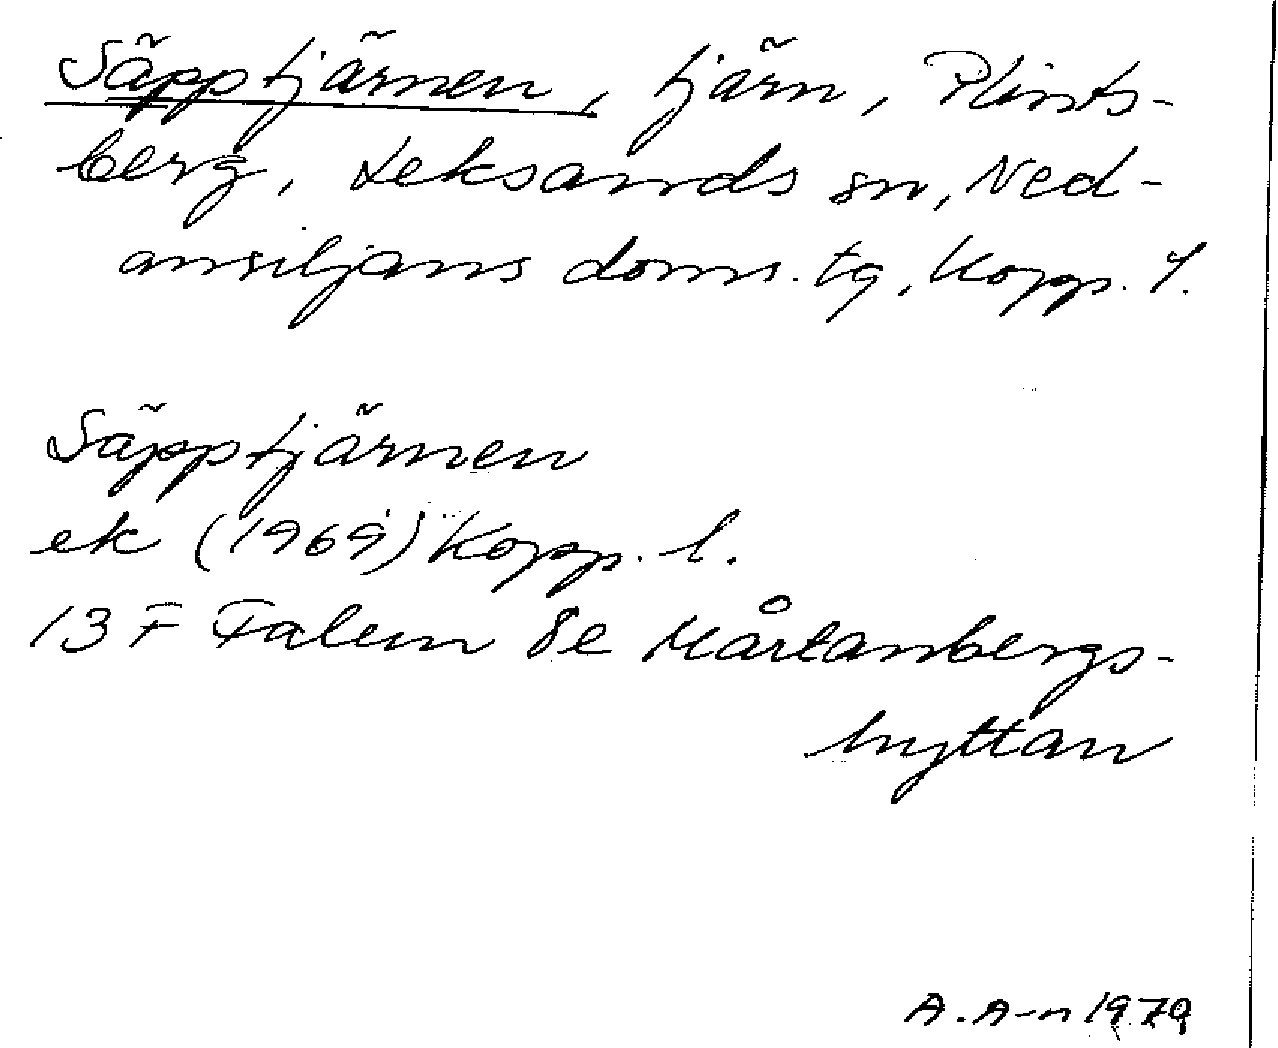 Säpptjärnen, tjärn, Plints-
berg, Leksands sn, Ned-
ansiljans doms. tg, Kopp. l.
Säpptjärnen
ek (1969) Kopp. l.
13 F Falun 8e Mårtanbergs-
hyttan
A. A-n 1979